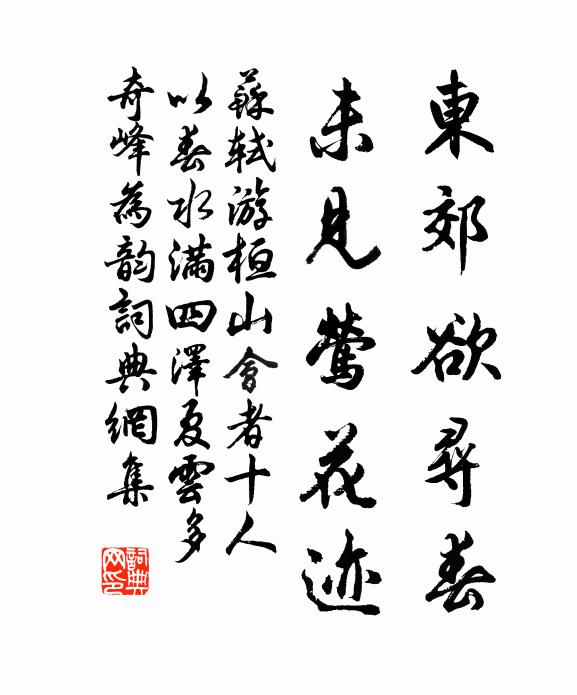 東郊欲尋春
未見鶯花迹
蘇軾游桓山會者十人
以春水滿四澤夏雲多
奇峰為韵詞典網集
詞典網印